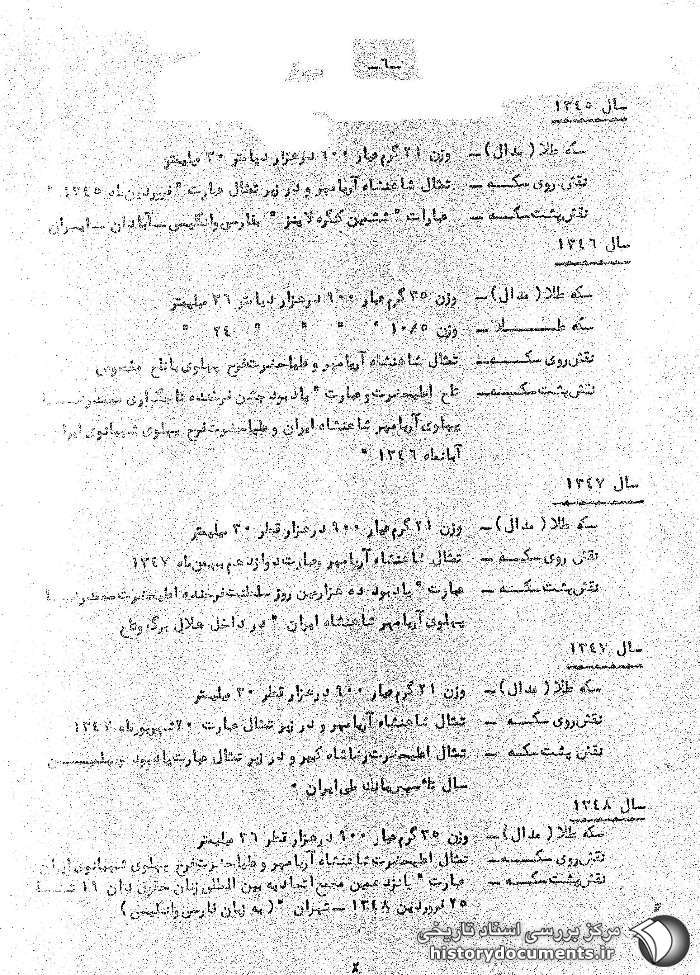 ـ٦ـ
سال ١٣٤٥
سکه طلا ( مدال ) ـ وزن ٢١ گرم عیار ٩٠٠ در هزار دیا متر ٣٠ میلیمتر
نقش روی سکـــه ـ تمثال شاهنشاه آریامهر و در زیر تمثال عبارت " فروردین ماه ١٣٤٥ "
نقش پشت سکـــه ـ عبارات " ششمین کنگره لاینز " بفارسی وانگلیسی ـ آبادان ـ ایـران
سال ١٣٤٦
سکه طلا ( مدال ) ـ وزن ٣٥ گرم عیار ٩٠٠ در هزار دیا متر ٣٦ میلیمتر
سکه طـــــلا ـ وزن ١٠/٥ " " " " ٢٤ "
نقش روی سکـــه ـ تمثال شاهنشاه آریامهر و علیاحضرت فرح پهلوی با تاج مخصوص
نقش پشت سکـــه ـ تاج اعلیحضرت و عبارت " یاد بود جشن فرخنده تاجگذاری
پهلوی آریامهر شاهنشاه ایران و علیاحضرت فرح پهلوی شهبانوی ایران
آبانماه ١٣٤٦ "
سال ١٣٤٧
سکه طلا ( مدال ) ـ وزن ٢١ گرم عیار ٩٠٠ در هزار قطر ٣٠ میلیمتر
نقش روی سکـــه ـ تمثال شاهنشاه آریامهر وعبارت دوازدهم بهمن ماه ١٣٤٧
نقش پشت سکـــه ـ عبارت " یاد بود ده هزارمین روز سلطنت فرخنده اعلیحضرت
پهلوی آریامهر شاهنشاه ایران " در داخل هلالی برگ وتاج
سال ١٣٤٧
سکه طلا ( مدال ) ـ وزن ٢١ گرم عیار ٩٠٠ در هزار قطر ٣٠ میلیمتر
نقش روی سکـــه ـ تمثال شاهنشاه آریامهر و در زیر تمثال عبارت شهریور ماه ١٣٤٧
نقش پشت سکه ـ تمثال اعلیحضرت رضاشاه کبیر و در زیر تمثال عبارت یاد بود چهلمیـــن
سال تأسیس بانک ملی ایران "
سال ١٣٤٨
سکه طلا ( مدال ) ـ وزن ٣٥ گرم عیار ٩٠٠ در هزار قطر ٣٦ میلیمتر
نقش روی سکـــه ـ تمثال اعلیحضرت شاهنشاه آریامهر و علیاحضرت فرح پهلوی شهبانوی ایران
نقش پشت سکـــه ـ عبارت " پانزدهمین مجمع اتحادیه بین المللی زنان حقوق دان ١٩
٢٥ فروردین ١٣٤٨ ـ تهران " ( به زبان فارسی وانگلیسی )
مرکز بررسی اسناد تاریخی
historydocuments.ir